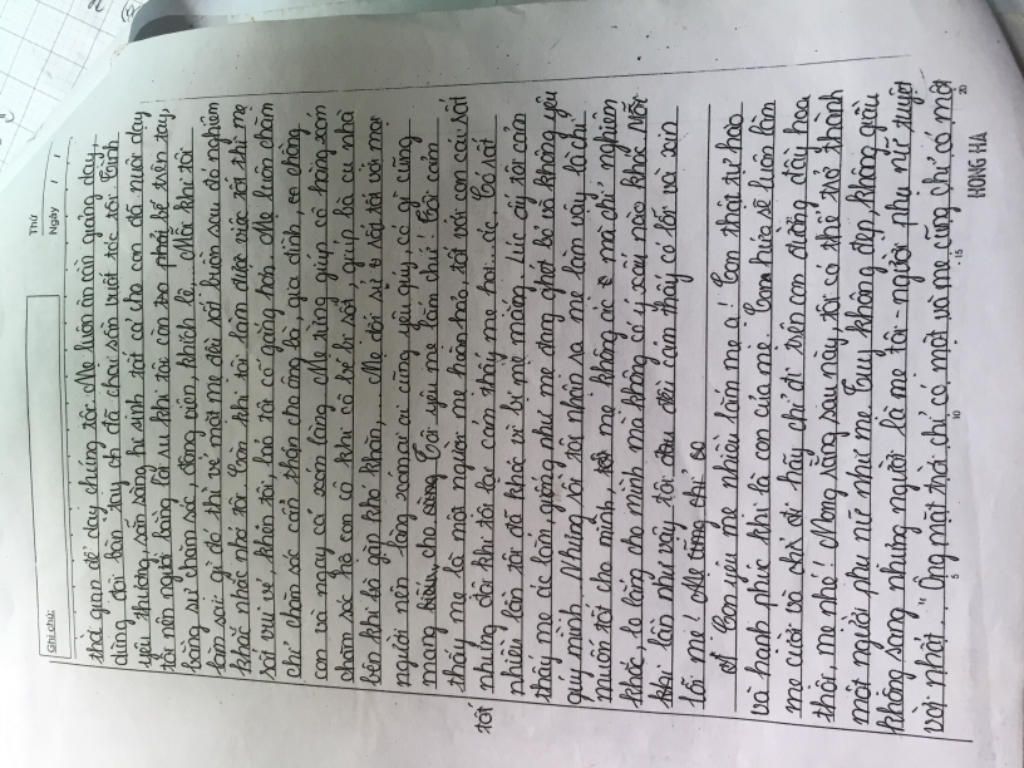 Ghi chú:
Thứ
Ngày / /
thời gian để dạy chúng tôi. Mẹ luôn ân cần giảng dạy,
dùng đôi bàn tay chăm sóc vuốt tóc tôi. Tình
yêu thương, sẵn sàng hi sinh tất cả cho con đã nuôi dạy
tôi nên người bằng lời su khi tôi còn bé trên tay,
bằng sự chăm sóc, động viên, khích lệ... Mỗi khi tôi
làm sai gì đó thì vẻ mặt mẹ đều rất buồn sau đó nghiêm
khắc nhắc nhở tôi. Còn khi tôi làm được việc tốt thì mẹ
rất vui vẻ, khen tôi, bảo tôi cố gắng hơn. Mẹ luôn chăm
chỉ chăm sóc cất thấp cho ông bà, gia đình, chồng
con và may cả xóm làng. Mẹ từng giúp cô hàng xóm
chăm sóc hộ con cô khi cô bé bị sốt, giúp bà cụ nhà
bên khi bà gặp khó khăn,... Mẹ đối xử rất tốt với mọi
người nên làng xóm ai ai cũng yêu quý, có gì cũng
mang biếu, cho. Tôi yêu mẹ lắm chứ! Tôi còn
thấy mẹ là một người mẹ hoàn hảo, tốt với con cái rất
tốt
nhưng đôi khi tôi lại cảm thấy mẹ hơi...ác. Có rất
nhiều lần tôi đã khóc vì bị mẹ mắng. Lúc ấy tôi cảm
thấy mẹ ác lắm, giống như mẹ đang ghét bỏ và không yêu
quý mình. Nhưng rồi tôi nhận ra mẹ làm vậy là chỉ
muốn tốt cho mình, mẹ không ác mà chỉ nghiêm
khắc, lo lắng cho mình mà không có ý xấu nào khác. Mỗi
lần như vậy tôi đều cảm thấy có lỗi và xin
lỗi mẹ! Mẹ cũng chỉ
Con yêu mẹ nhiều lắm mẹ ạ! Con thật tự hào
và hạnh phúc khi là con của mẹ. Con hứa sẽ luôn làm
mẹ cười và chỉ đi hãy chỉ đi trên con đường đầy hoa
thôi, mẹ nhé! Mong rằng sau này, tôi có thể trở thành
một người phụ nữ như mẹ. Tuy không đẹp, không giàu
không sang nhưng người là mẹ tôi - người phụ nữ tuyệt
vời nhất. "Ông mặt trời chỉ có một và mẹ cũng chỉ có một
5 10 15 20
HONG HA